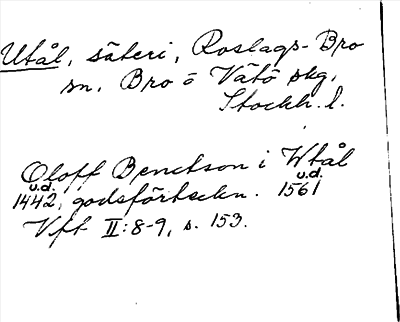 Utål, säteri, Roslags-Bro
sn, Bro o Vätö skg,
Stockh. l.
Oloff Benctson i Wtål
u.d. u.d.
1442, godsförteckn. 1561
Vft II:8-9, s. 153.